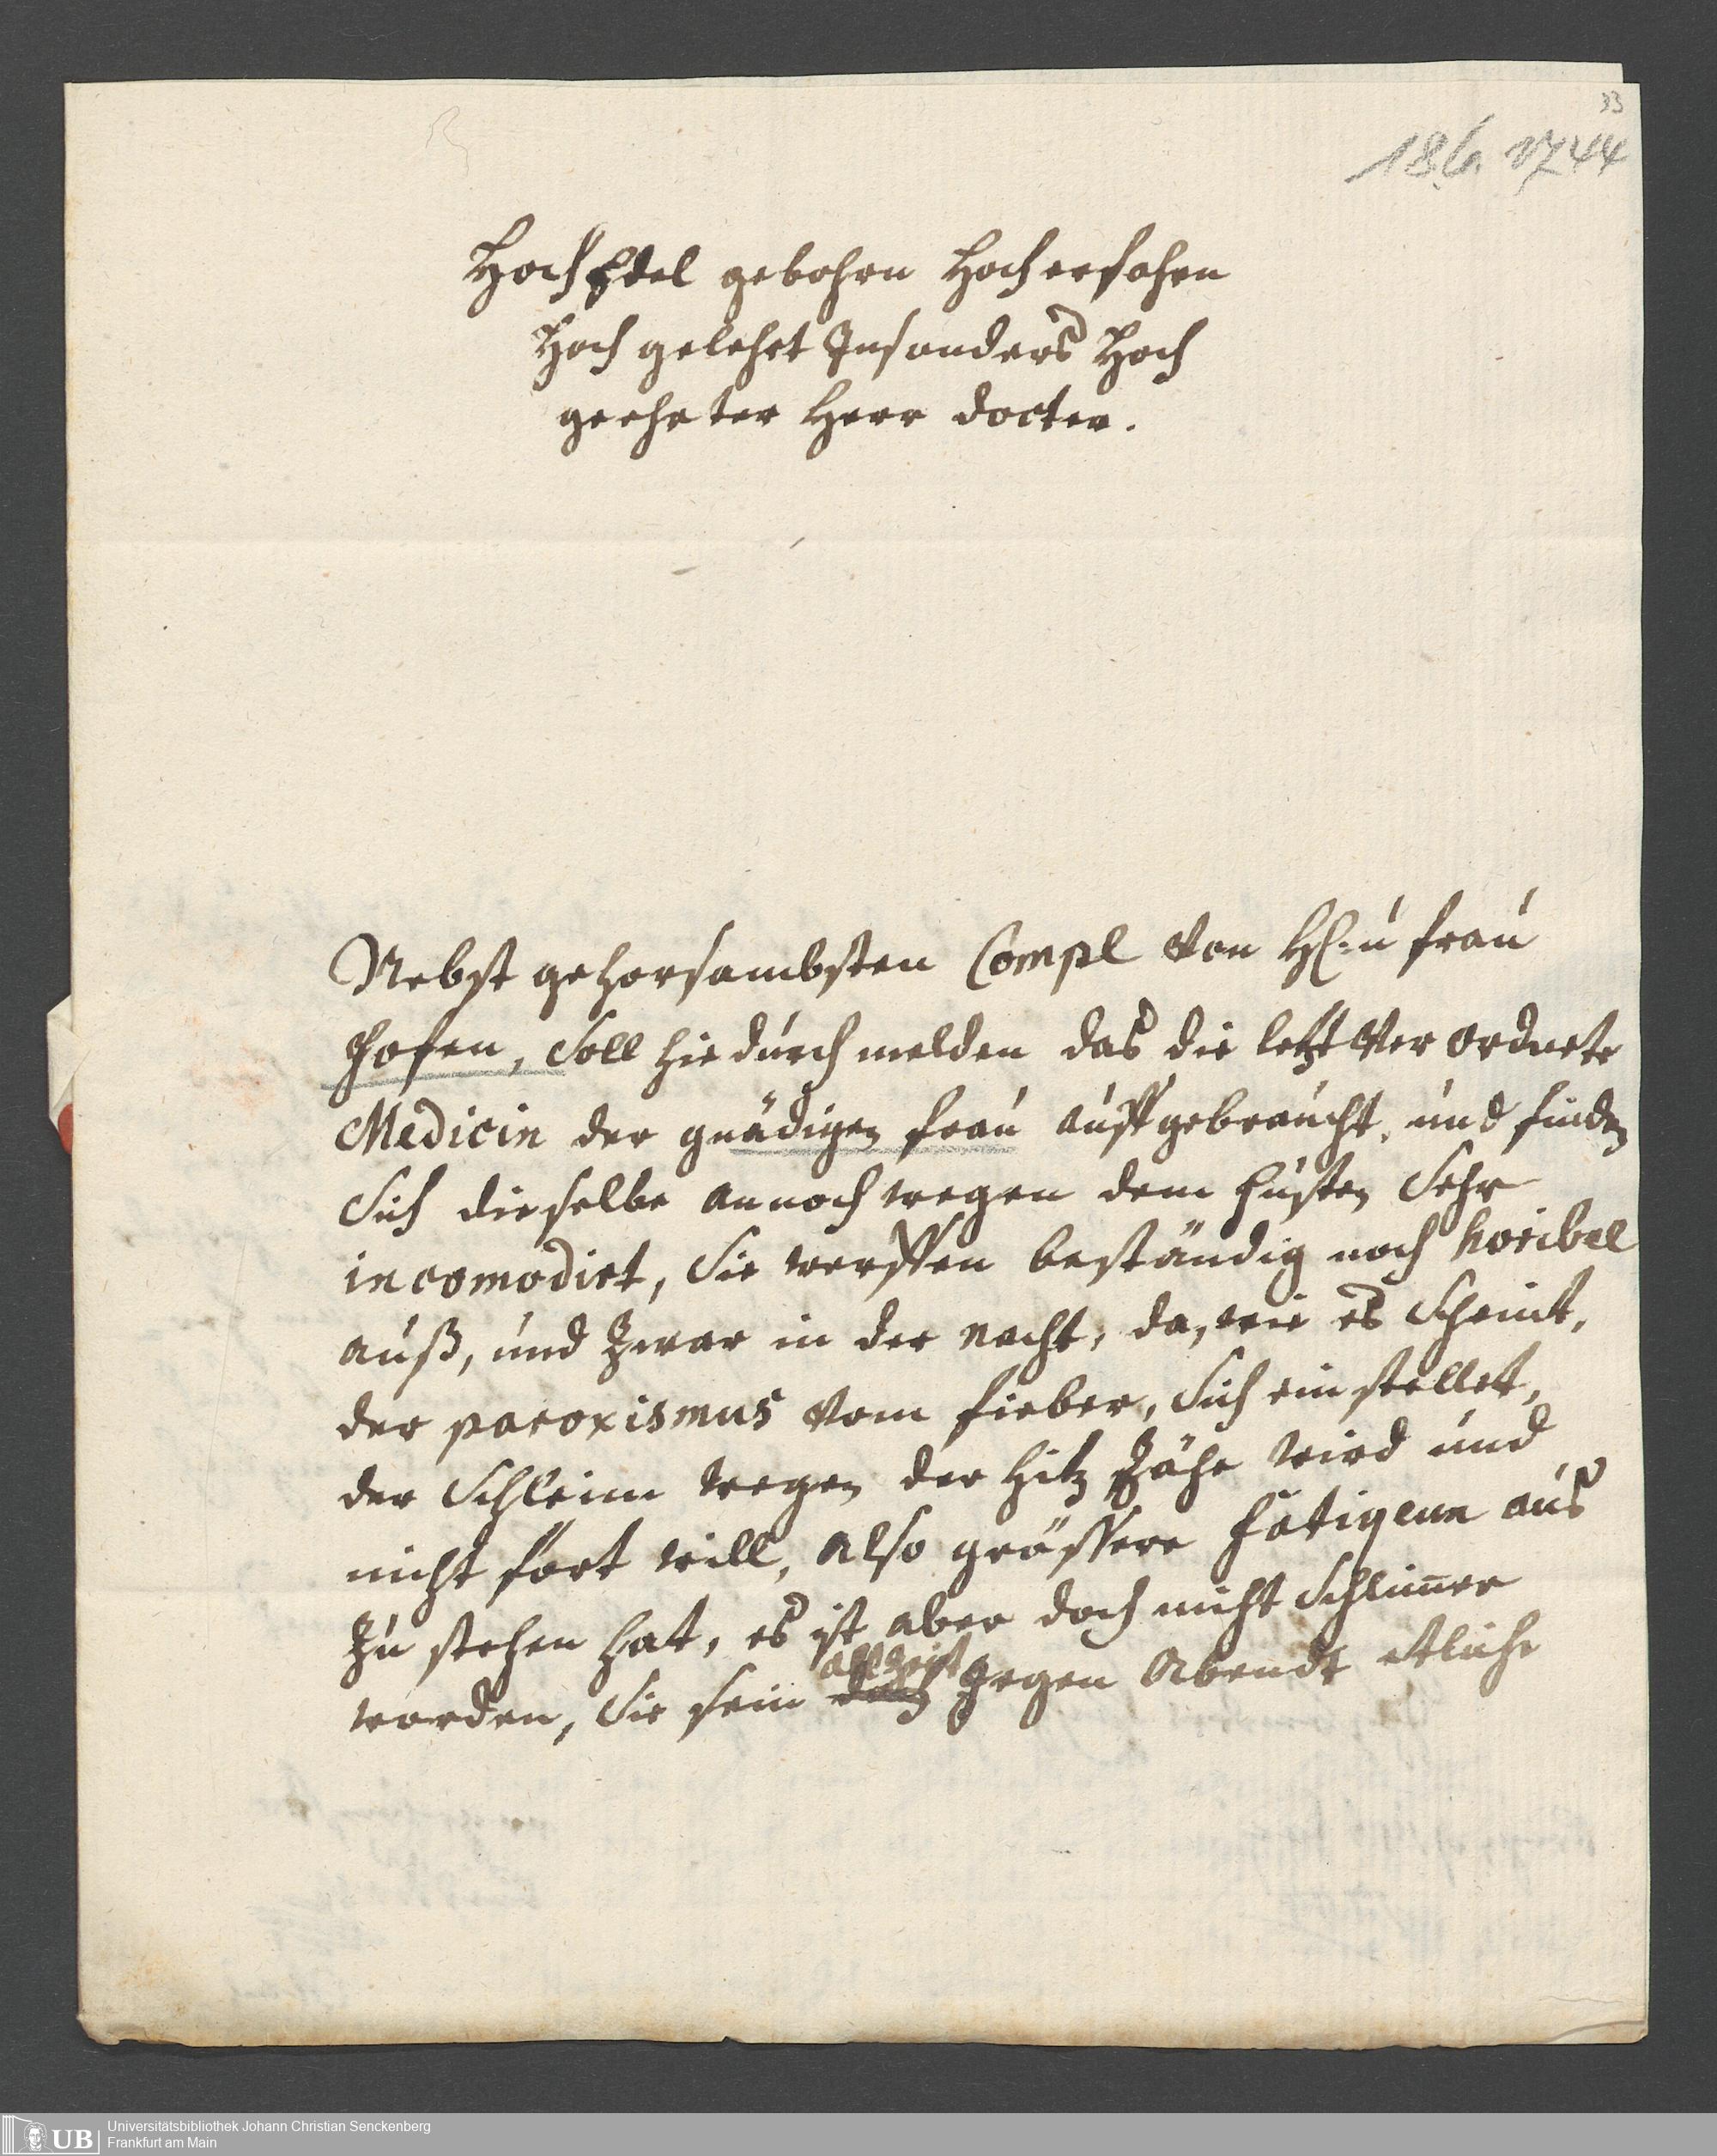 33
18.6. 1744
HochEdel gebohrn Hocherfahrn
Hoch gelehrt Insonders Hoch
geehrter Herr docter.
Nebst gehorsambsten Compl von H. u frau
hofen, Soll hiedurch melden das die letzt Ver ordnete
Medicin der gnädigen frau auffgebraucht, und finden
Sich dieselbe annoch wegen dem husten Sehr
incomodirt, Sie werffen beständig noch horibel
auß, und Zwar in der nacht, da, wie es Scheint,
der paroxismus Vom fieber, Sich ein stellet,
der Schleim wegen der Hitz Zähe wird und
nicht fort will, also grössere fatiguen aus
Zu stehen hat, es ist aber doch nicht Schlimer
allzeit
worden, Sie sein doch gegen Abendt etliche
UB Universitätsbibliothek Johann Christian Senckenberg
Frankfurt am Main